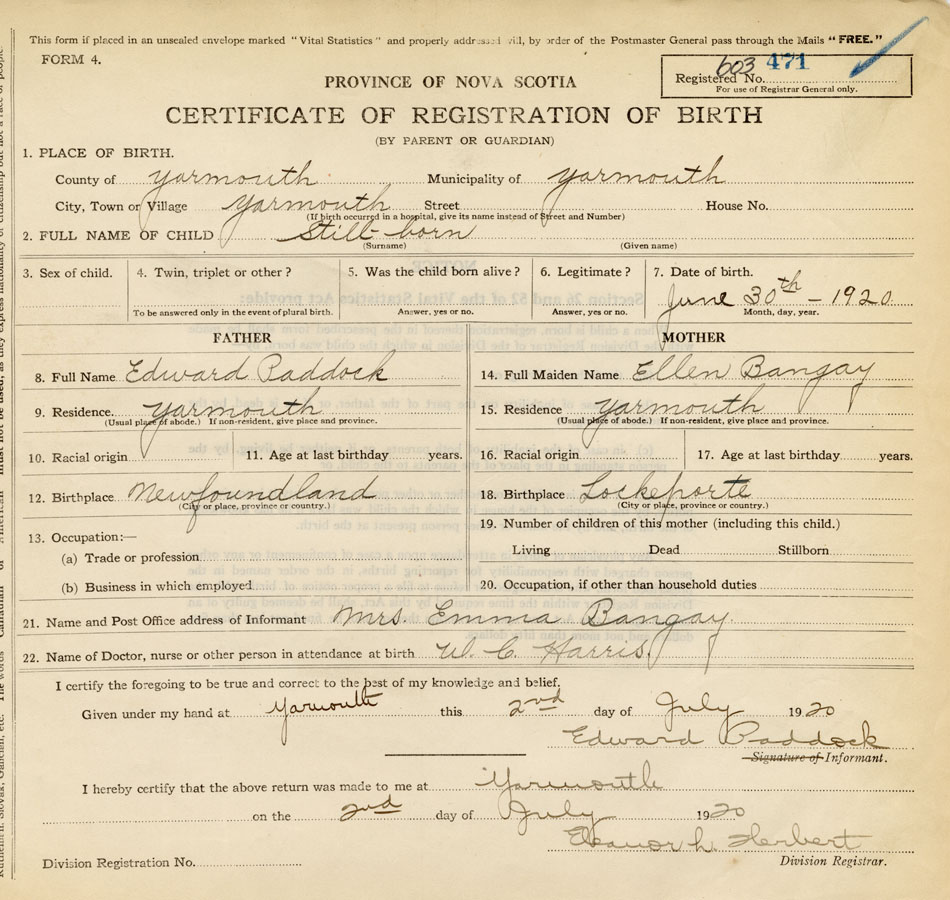 This form if placed in an unsealed envelope marked "Vital Statistics" and properly addressed will, by order of the Postmaster General pass through the Mails "FREE."
FORM 4.
603 471
Registered No.
For use of Registrar General only.
PROVINCE OF NOVA SCOTIA
CERTIFICATE OF REGISTRATION OF BIRTH
(BY PARENT OR GUARDIAN)
1. PLACE OF BIRTH.
County of Yarmouth Municipality of Yarmouth
City, Town or Village Yarmouth Street House No.
(If birth occurred in a hospital, give its name instead of Street and Number)
2. FULL NAME OF CHILD Still-born
(Surname) (Given name)
3. Sex of child. 4. Twin, triplet or other? 5. Was the child born alive? 6. Legitimate? 7. Date of birth.
June 30th - 1920
To be answered only in the event of plural birth. Answer, yes or no. Answer, yes or no. Month, day, year.
FATHER MOTHER
8. Full Name Edward Paddock 14. Full Maiden Name Ellen Bangay
9. Residence. Yarmouth 15. Residence Yarmouth
(Usual place of abode.) If non-resident, give place and province. (Usual place of abode.) If non-resident, give place and province.
10. Racial origin 11. Age at last birthday years. 16. Racial origin 17. Age at last birthday years.
12. Birthplace Newfoundland 18. Birthplace Lockeporte
(City or place, province or country.) (City or place, province or country.)
13. Occupation:— 19. Number of children of this mother (including this child.)
(a) Trade or profession Living Dead Stillborn
(b) Business in which employed 20. Occupation, if other than household duties
21. Name and Post Office address of Informant Mrs. Emma Bangay
22. Name of Doctor, nurse or other person in attendance at birth W. C. Harris.
I certify the foregoing to be true and correct to the best of my knowledge and belief.
Given under my hand at Yarmouth this 2nd day of July 1920
Edward Paddock
Signature of Informant.
I hereby certify that the above return was made to me at Yarmouth
on the 2nd day of July 1920
Eleanor L. Herbert
Division Registration No. Division Registrar.